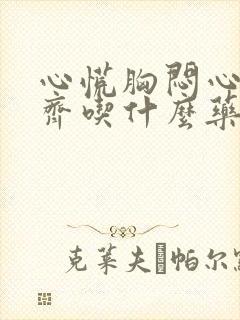 心慌胸悶心
齊喫什麼藥
克莱夫 帕尔